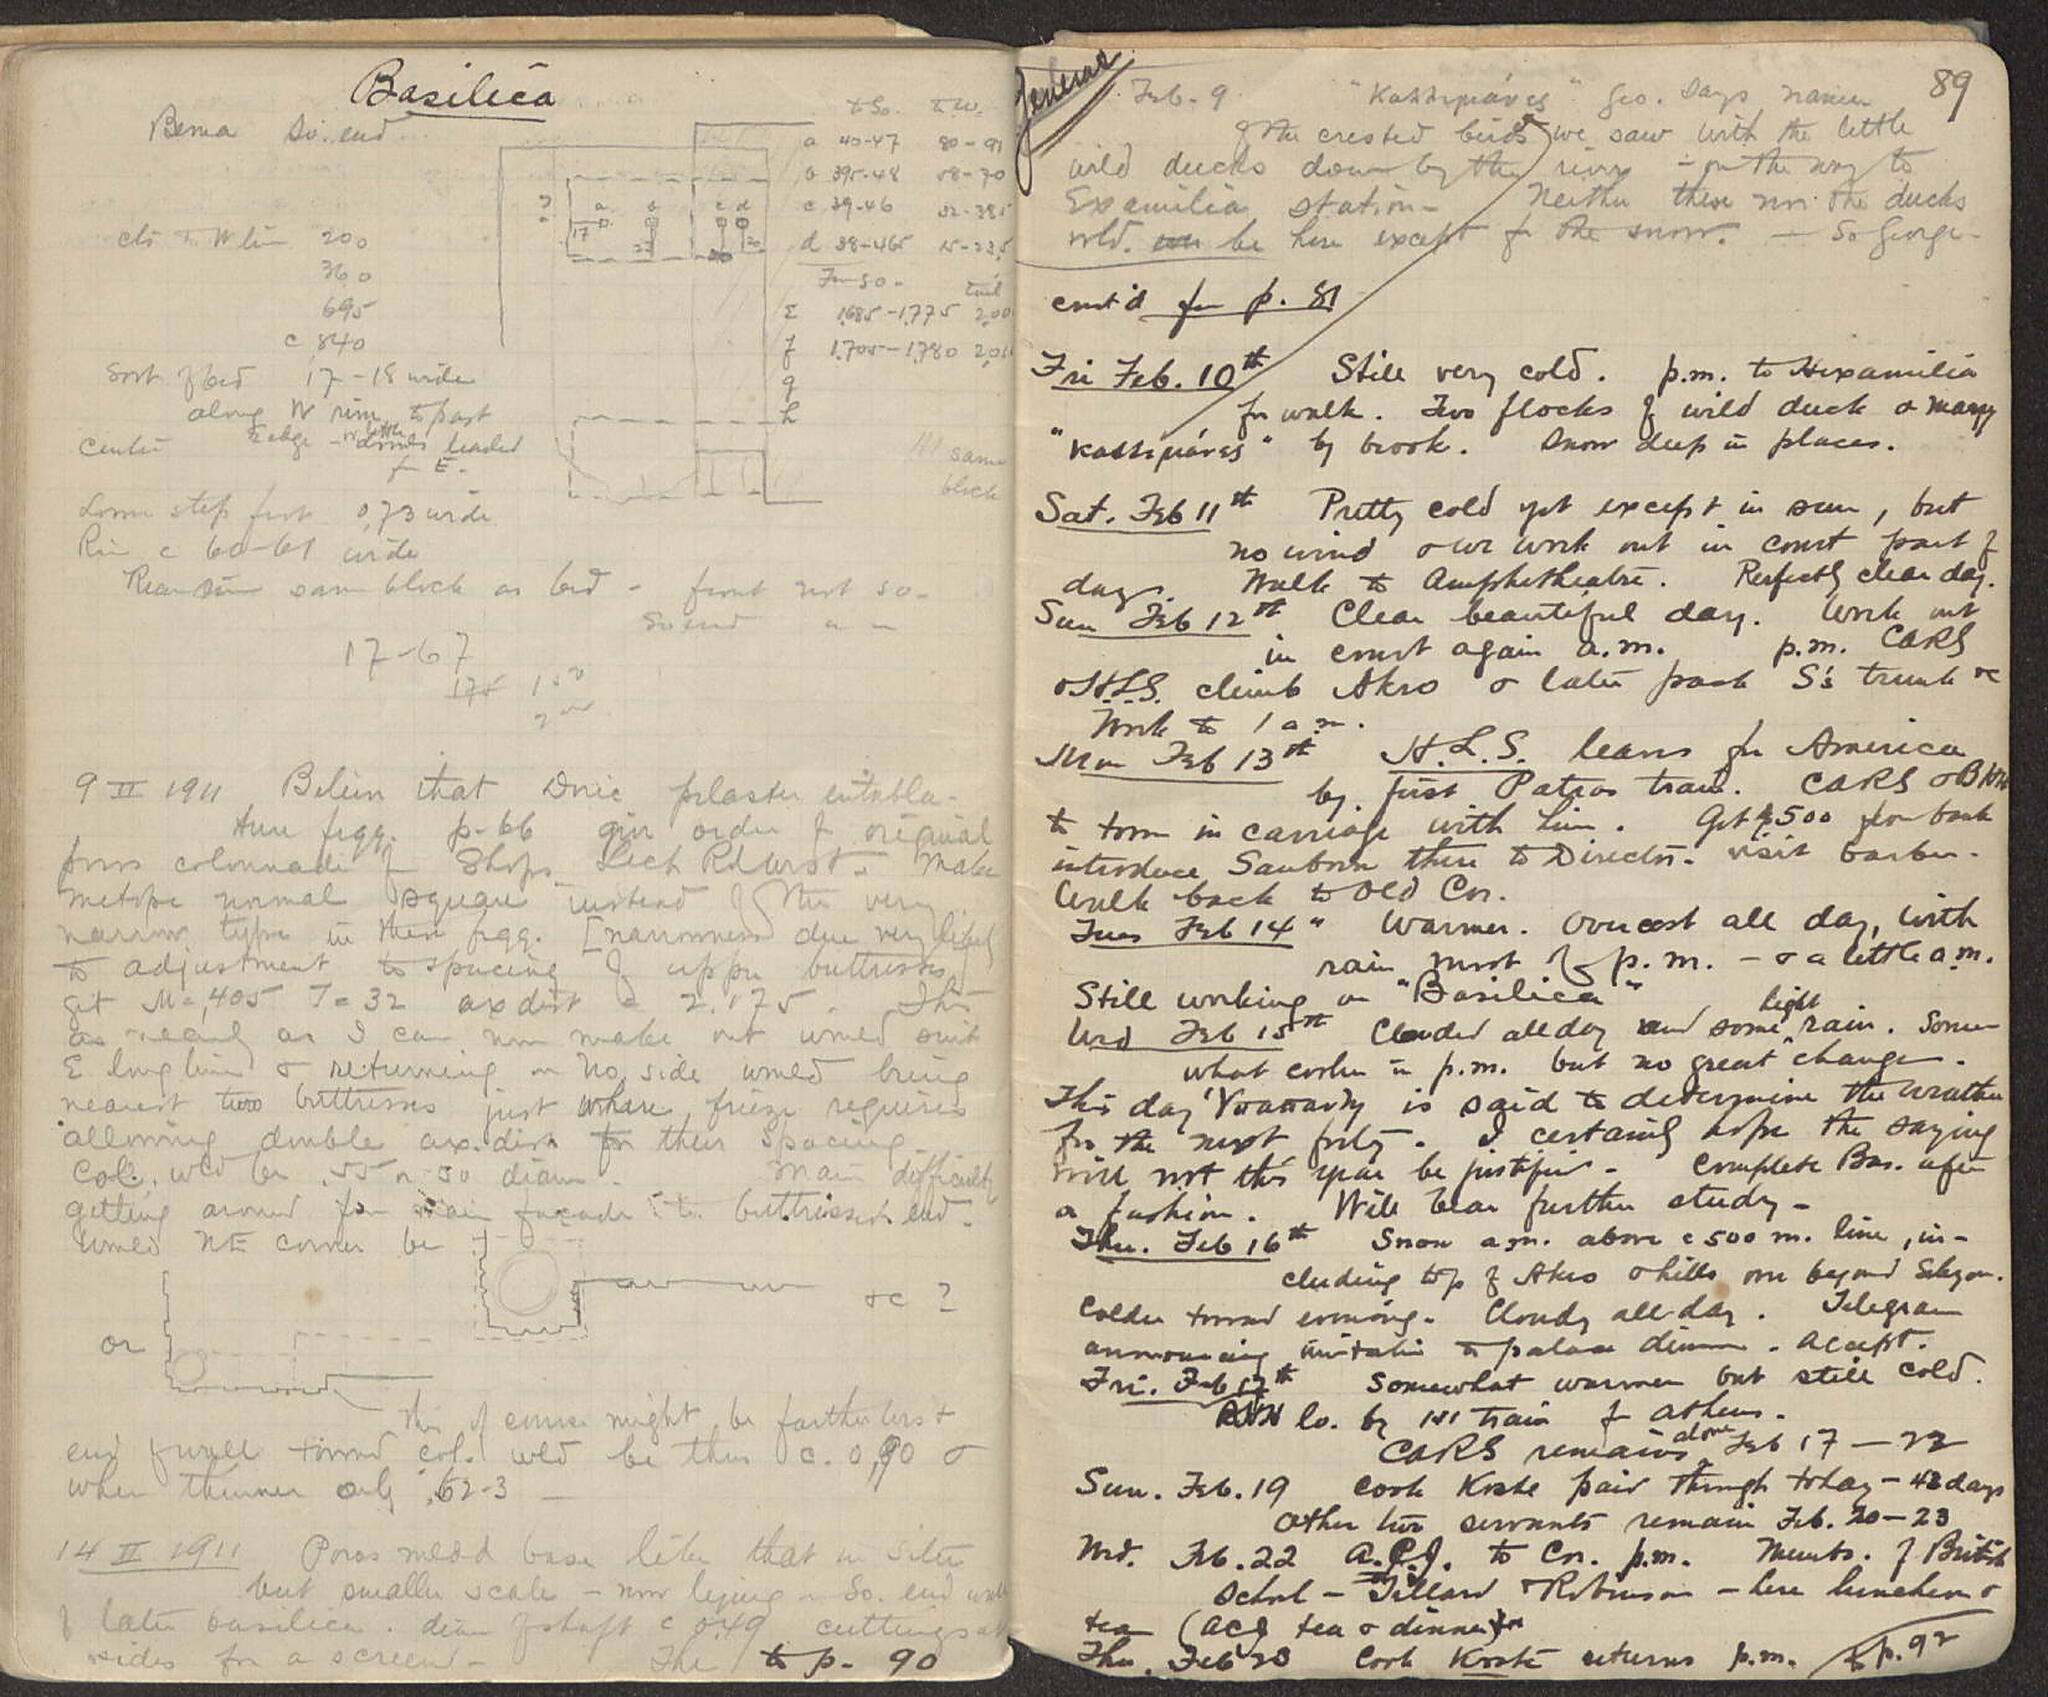 Basilica
Bema So. end
to So. to W.
a 40-47 80-91
b 395-48 58-70
c 39-46 32-385
d 38-465 15-235
Fr So.
E 1.685-1.775 2.00
f 1.705-1.780 2.01
g
h
a b c d
17
cts to W line 200
360
695
c 840
Sort of bed 17-18 wide
along W rim to part
Center
fr E.
same
block
Lower step foot 0,73 wide
Rim c 60-61 wide
Rear rim same block as bed - front not so -
So end " "
17-67
9 II 1911 Believe that Doric pilaster entabla-
ture figg. p-66 give order of original
poros colonnade of Shops Lech Rd West. Make
metope normal square instead of the very
narrow type in these figg. [narrowness due very likely
to adjustment to spacing of upper buttresses
get M=,405 T=32 ax dist = 2.175. This
as nearly as I can now make out would suit
E long line & returning on No. side would bring
nearest two buttresses just where frieze requires
allowing double ax. dist for their spacing
Col. wld be .55 or 50 diam. Main difficulty
getting around from main facade to buttressed end.
Would NE corner be
&c ?
or
This of course might be farther west
end of wall toward col. wld be thus c. 0,90 &
when thinner only .62-3 -
14 II 1911 Poros med base like that in situ
but smaller scale - now lying in So. end wall
of later basilica. diam of shaft c 0.49 cuttings at
sides for a screen - The to p. 90
General
89
Feb. 9 "Καλημάνες" Geo. says name
of the crested birds we saw with the little
wild ducks down by the river - on the way to
Examilia station - Neither these nor the ducks
wld. be here except for the snow. - So George -
cont'd fr p. 81
Fri Feb. 10th Still very cold. p.m. to Hexamilia
for walk. Two flocks of wild duck & many
"Καλημάνες" by brook. Snow deep in places.
Sat. Feb 11th Pretty cold yet except in sun, but
no wind & we work out in court part of
day. Walk to Amphitheatre. Perfectly clear day.
Sun Feb 12th Clear beautiful day. Work out
in court again a.m. p.m. CARS
& HLS. climb Akro & later pack S's trunk &c
Work to 1 a.m.
Mon Feb 13th H.L.S. leaves for America
by first Patras train. CARS &
to town in carriage with him. Get 500 from bank
introduce Sanborn there to Director. visit barber.
Walk back to Old Cor.
Tues Feb 14 " Warmer. Overcast all day, with
rain most of p.m. - & a little a.m.
Still working on "Basilica"
Wed Feb 15th Clouded all day and some light rain. Some-
what cooler in p.m. but no great change.
This day 'Υπαπαντή is said to determine the weather
for the next forty. I certainly hope the saying
will not this year be justified. Complete Bas. after
a fashion. Will bear further study -
Thu. Feb 16th Snow a.m. above c 500 m. line, in-
cluding top of Akro & hills over beyond Sikyon.
Colder toward evening. Cloudy all day. Telegram
announcing invitation to palace dinner. Accept.
Fri. Feb 17th Somewhat warmer but still cold.
lv. by 1st train for Athens.
CARS remains alone Feb 17 - 22
Sun. Feb. 19 Cook Kosta paid through today - 43 days
Other two servants remain Feb. 20-23
Wed. Feb. 22 A.C.J. to Cor. p.m. Membs. of British
School - Tillard & Robinson - here luncheon &
tea (ACJ tea & dinner)
Thu. Feb 23 Cook Kosta returns p.m. to p. 92